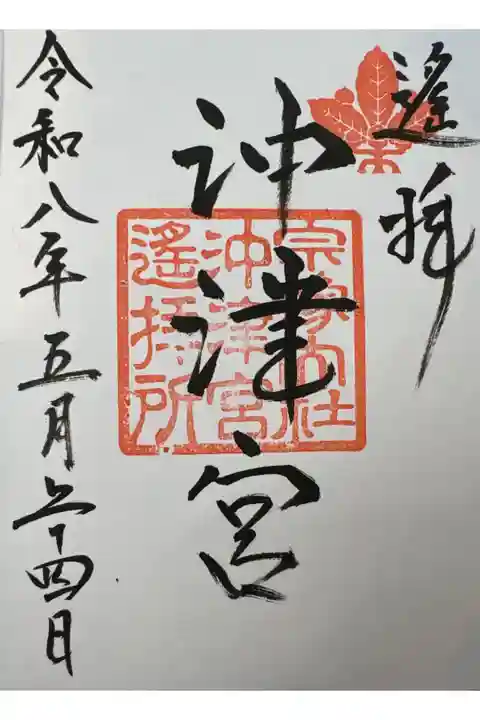 遥拝
沖津宮
令和八年五月二十四日
宗像大社
沖津宮
遙拝所